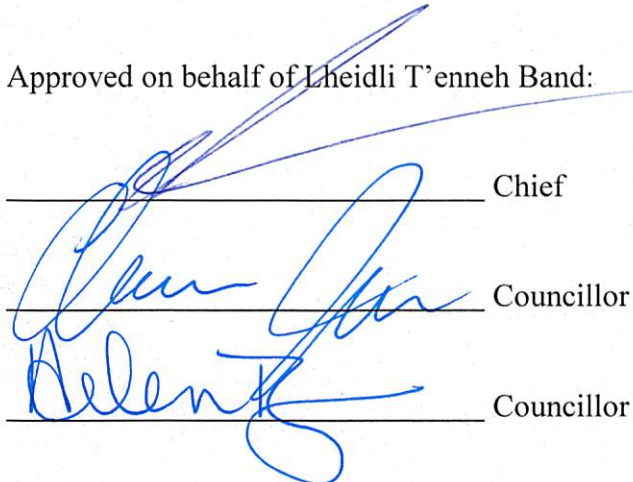 Approved on behalf of Lheidli T'enneh Band:
Chief
Councillor
Helen
Councillor